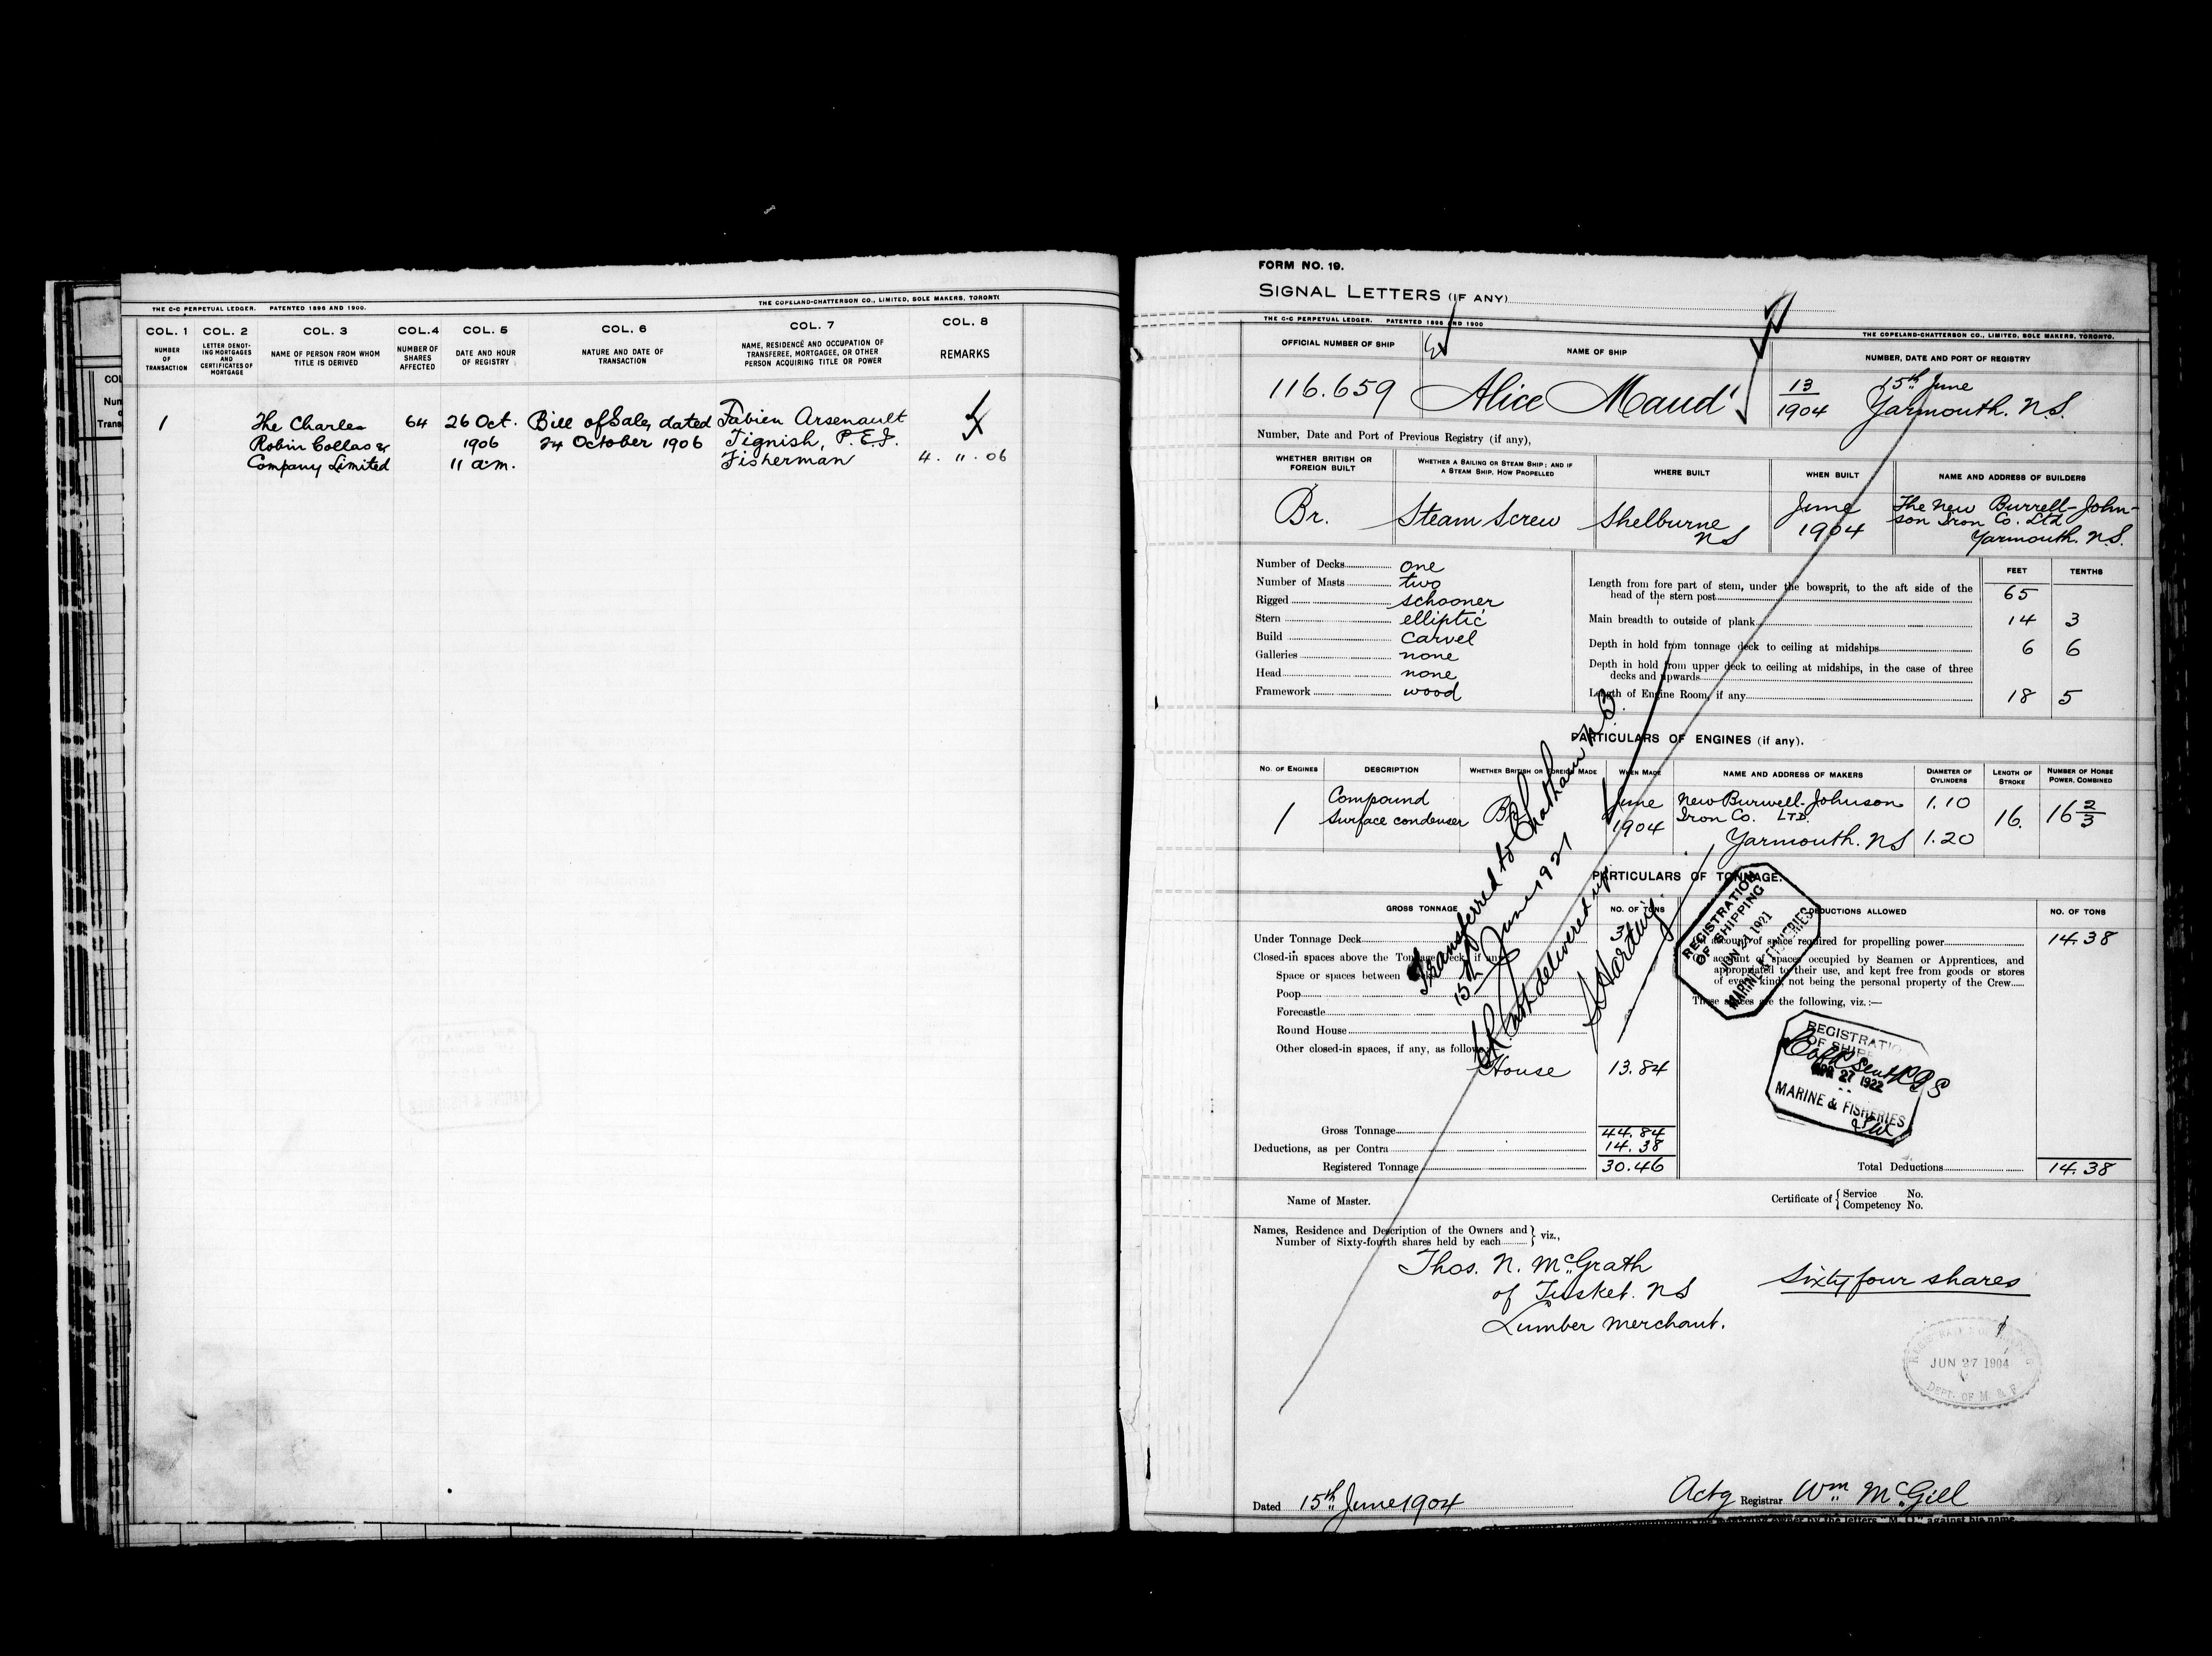 THE C-C PERPETUAL LEDGER. PATENTED 1896 AND 1900.
THE COPELAND-CHATTERSON CO., LIMITED, SOLE MAKERS, TORONT
COL. 1 COL. 2 COL. 3 COL. 4 COL. 5 COL. 6 COL. 7 COL. 8
NUMBER OF TRANSACTION
LETTER DENOT-ING MORTGAGES AND CERTIFICATES OF MORTGAGE
NAME OF PERSON FROM WHOM TITLE IS DERIVED
NUMBER OF SHARES AFFECTED
DATE AND HOUR OF REGISTRY
NATURE AND DATE OF TRANSACTION
NAME, RESIDENCE AND OCCUPATION OF TRANSFEREE, MORTGAGEE, OR OTHER PERSON ACQUIRING TITLE OR POWER
REMARKS
1 The Charles 64 26 Oct. Bill of Sale, dated Fabien Arsenault
Robin Collas & 1906 24 October 1906 Tignish, P.E.I.
Company Limited 11 a.m. Fisherman 4. 11. 06
FORM NO. 19.
SIGNAL LETTERS (IF ANY)
THE C-C PERPETUAL LEDGER. PATENTED 1896 AND 1900
THE COPELAND-CHATTERSON CO., LIMITED, SOLE MAKERS, TORONTO.
OFFICIAL NUMBER OF SHIP NAME OF SHIP NUMBER, DATE AND PORT OF REGISTRY
116.659 Alice Maud 13/1904 15th June Yarmouth. N.S.
Number, Date and Port of Previous Registry (if any),
WHETHER BRITISH OR FOREIGN BUILT
WHETHER A SAILING OR STEAM SHIP; AND IF A STEAM SHIP, HOW PROPELLED
WHERE BUILT
WHEN BUILT
NAME AND ADDRESS OF BUILDERS
Br. Steam Screw Shelburne NS June 1904 The New Burrell-John-
son Iron Co. Ltd
Yarmouth. N.S.
Number of Decks one
Number of Masts two
Rigged schooner
Stern elliptic
Build Carvel
Galleries none
Head none
Framework wood
FEET TENTHS
Length from fore part of stem, under the bowsprit, to the aft side of the
head of the stern post 65
Main breadth to outside of plank 14 3
Depth in hold from tonnage deck to ceiling at midships 6 6
Depth in hold from upper deck to ceiling at midships, in the case of three
decks and upwards
Length of Engine Room, if any 18 5
PARTICULARS OF ENGINES (if any).
NO. OF ENGINES DESCRIPTION WHETHER BRITISH OR FOREIGN MADE WHEN MADE NAME AND ADDRESS OF MAKERS DIAMETER OF CYLINDERS LENGTH OF STROKE NUMBER OF HORSE POWER, COMBINED
1 Compound Surface condenser Br. June 1904 New Burwell-Johnson 1.10 16. 16 2/3
Iron Co. LTD.
Yarmouth. NS 1.20
PARTICULARS OF TONNAGE.
GROSS TONNAGE NO. OF TONS DEDUCTIONS ALLOWED NO. OF TONS
Under Tonnage Deck 3
account of space required for propelling power 14.38
Closed-in spaces above the Tonnage Deck, if any
On account of spaces occupied by Seamen or Apprentices, and
appropriated to their use, and kept free from goods or stores
of every kind, not being the personal property of the Crew
Space or spaces between
Poop
These spaces are the following, viz.:—
Forecastle
Round House
Other closed-in spaces, if any, as follows
House 13.84
Gross Tonnage 44.84
Deductions, as per Contra 14.38
Registered Tonnage 30.46
Total Deductions 14.38
Transferred to Chatham N B.
15th June 1921
delivered up
S Hartwig
REGISTRATION
OF SHIPPING
JUN 21 1921
MARINE & FISHERIES
REGISTRATION
OF SHIPPING
APR 27 1922
MARINE & FISHERIES
Name of Master.
Certificate of { Service No.
Competency No.
Names, Residence and Description of the Owners and
Number of Sixty-fourth shares held by each } viz.,
Thos. N. McGrath
of Tusket. NS
Lumber merchant.
Sixty four shares
JUN 27 1904
DEPT. OF M. & F.
Dated 15th June 1904
Actg Registrar Wm McGill